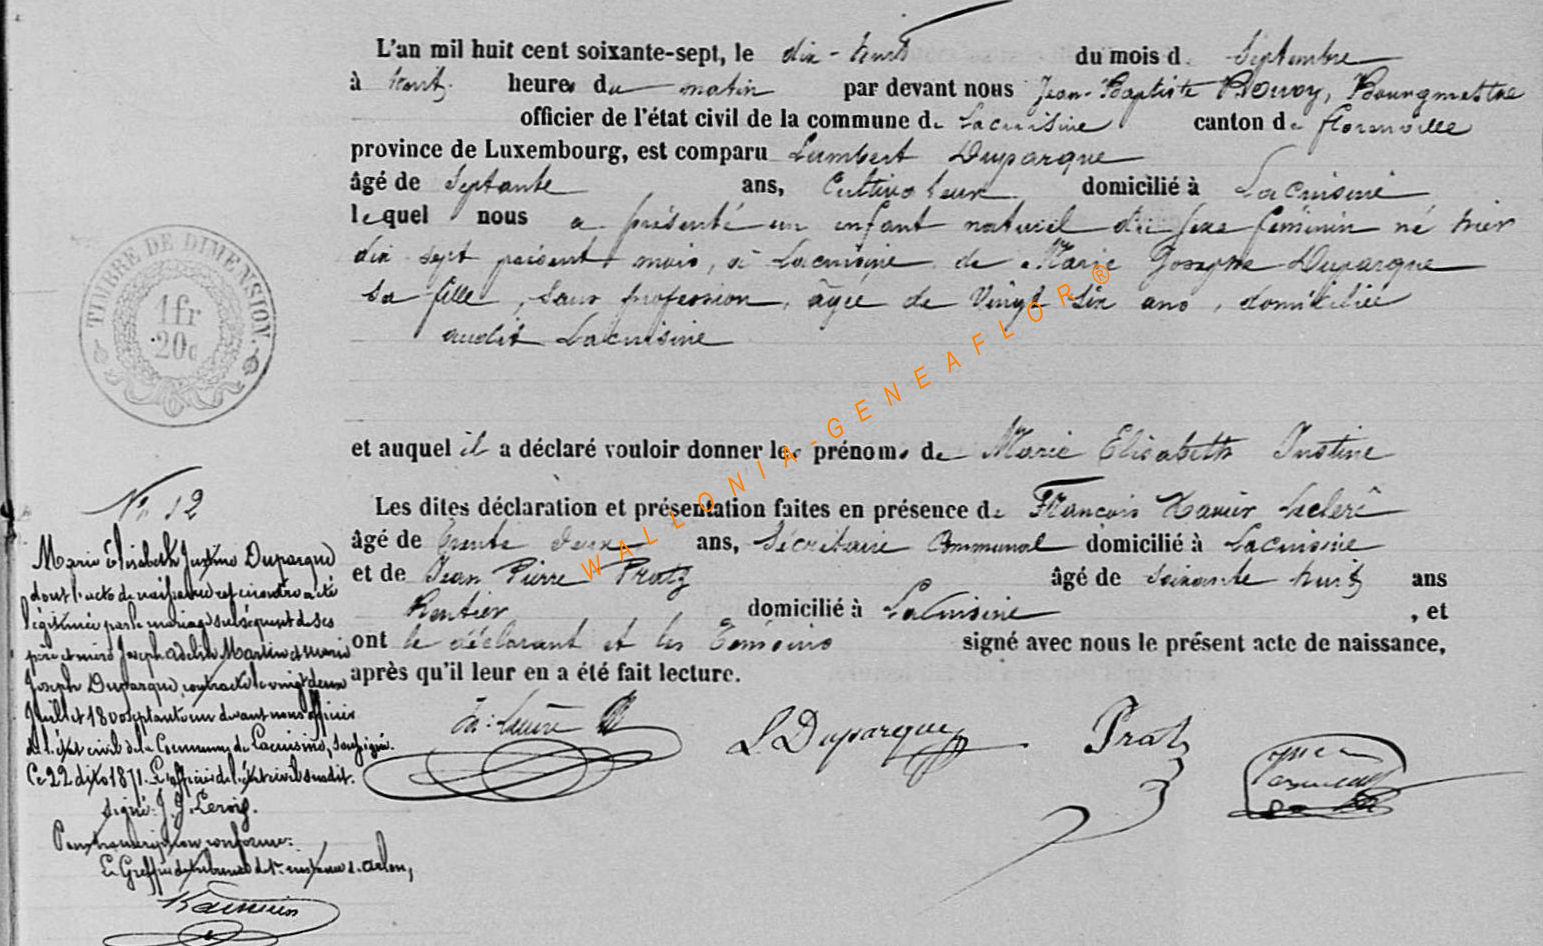 L'an mil huit cent soixante-sept, le dix-huit du mois de Septembre
à huit heures du matin par devant nous Jean-Baptiste Bourgmestre
officier de l'état civil de la commune de Lacuisine canton de florenville
province de Luxembourg, est comparu Lambert Duparque
âgé de Septante ans, Cultivateur domicilié à Lacuisine
lequel nous a présenté un enfant naturel du sexe féminin né hier
dix sept présent mois, à Lacuisine de Marie Josephe Duparque
sa fille, sans profession, âgée de Vingt six ans, domiciliée
audit Lacuisine
TIMBRE DE DIMENSION.
1fr
20c
et auquel il a déclaré vouloir donner les prénoms de Marie Elisabeth Justine
Les dites déclaration et présentation faites en présence de François Xavier Leclerc
âgé de trente deux ans, Sécrétaire Communal domicilié à Lacuisine
et de Jean Pierre Pratz âgé de soixante huit ans
Rentier domicilié à Lacuisine, et
ont le déclarant et les Témoins signé avec nous le présent acte de naissance,
après qu'il leur en a été fait lecture.
L Duparque Pratz
No 12
Marie Elisabeth Justine Duparque
dont l'acte de naissance est ci contre a été
légitimée par le mariage subséquent de ses
père et mère Joseph Martin et Marie
Joseph Duparque, contracté le vingt deux
Juillet 1800 septante un devant nous officier
de l'état civil de la Commune de Lacuisine, soussigné.
Ce 22 dito 1871. L'officier de l'état civil susdit.
signé: J. J.
Pour transcription conforme:
Le Greffier du tribunal de 1re instance d'Arlon,
WALLONIA-GENEAFLOR®